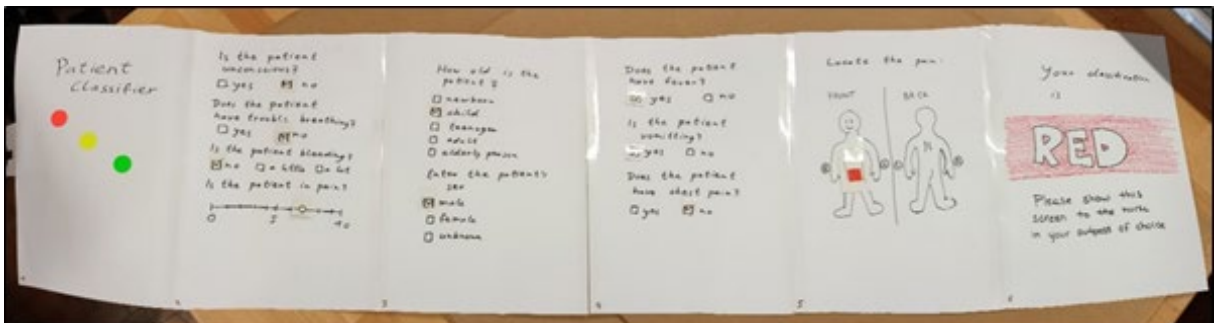 Patient
Classifier
Is the patient
unconscious?
yes no
Does the patient
have trouble breathing?
yes no
Is the patient bleeding?
no a little a lot
Is the patient in pain?
0 5 10
2
How old is the
patient?
newborn
child
teenager
adult
elderly person
Enter the patient's
sex
male
female
unknown
3
Does the patient
have fever?
yes no
Is the patient
vomitting?
yes no
Does the patient
have chest pain?
yes no
4
Locate the pain:
FRONT BACK
5
Your classification
is
RED
Please show this
screen to the nurse
in your outpost of choice
6